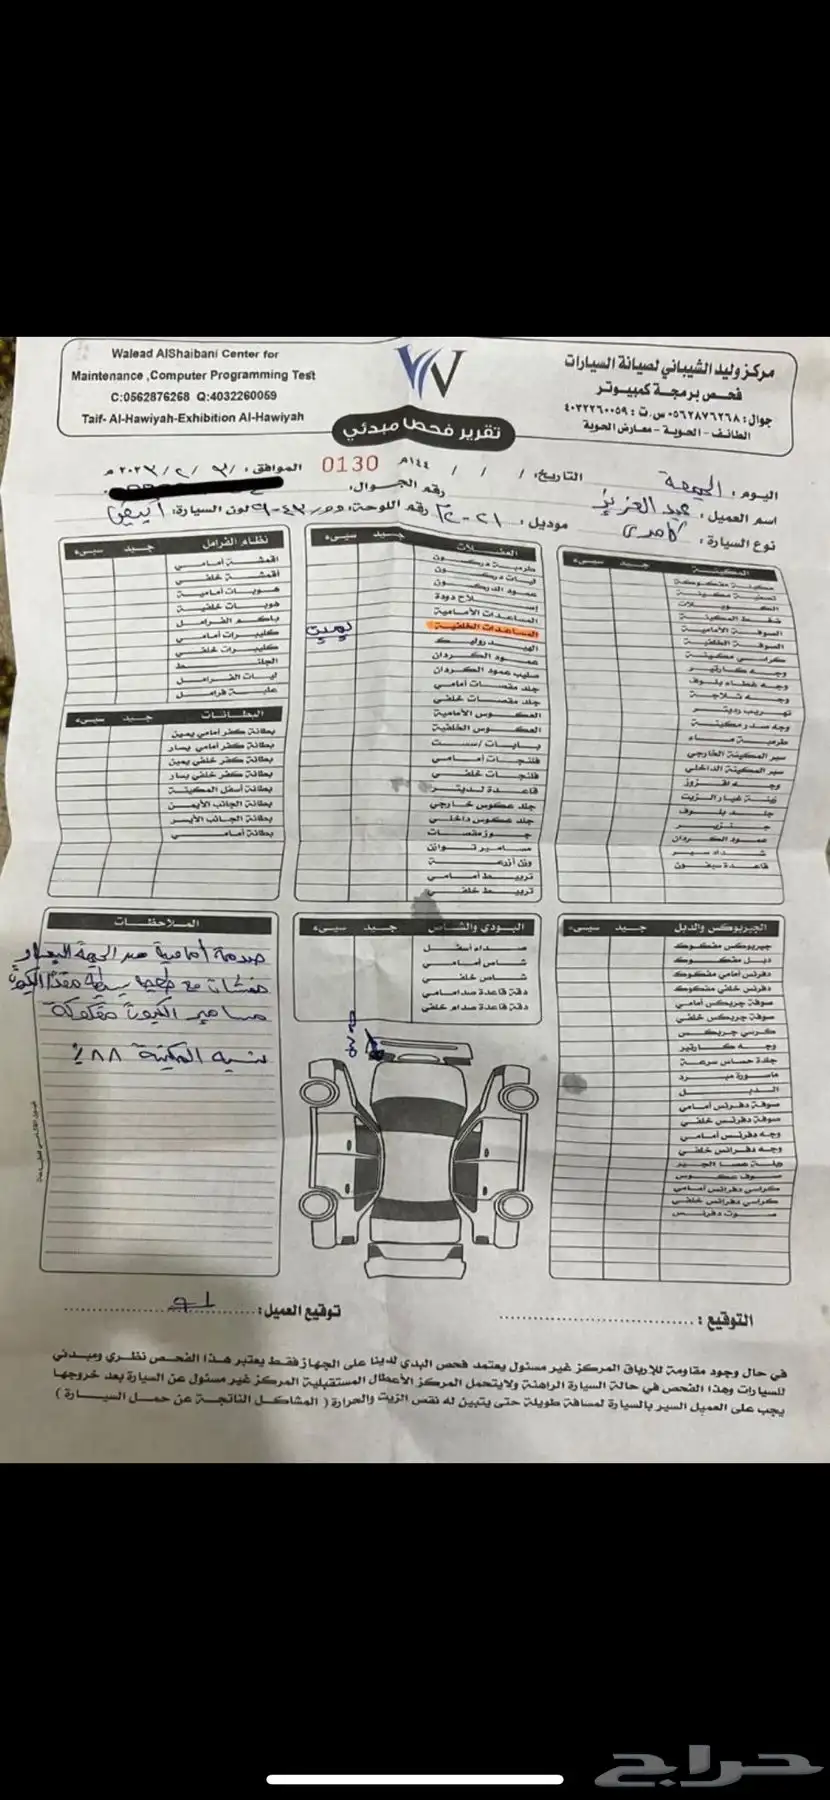 مركز وليد الشيباني لصيانة السيارات
فحص برمجة كمبيوتر
جوال: ٠٥٦٢٨٧٦٢٦٨ س.ت: ٤٠٣٢٢٦٠٠٥٩
الطائف - الحوية - معارض الحوية
Walead AlShaibani Center for
Maintenance ,Computer Programming Test
C:0562876268 Q:4032260059
Taif- Al-Hawiyah-Exhibition Al-Hawiyah
تقرير فحص مبدئي
اليوم: الجمعة التاريخ: / / ١٤٤م 0130 الموافق: ٣١ / ٣ / ٢٠٢٣ م
اسم العميل: عبدالعزيز رقم الجوال:
نوع السيارة: كامري موديل: رقم اللوحة: لون السيارة: أبيض
المكينة جيد سيىء
مكينة مفكوكة
تصفية مكينة
الكويلات
ضغط المكينة
الصوفة الأمامية
الصوفة الخلفية
كراسي مكينة
وجه كارتير
وجه غطاء بلوف
وجه ثلاجة
تهريب رديتر
وجه صدر مكينة
طرمبة ماء
سير المكينة الخارجي
سير المكينة الداخلي
وجه اقزوز
زينة غيار الزيت
جلد بلوف
جنزير
عمود الكردان
شداد سير
قاعدة سيفون
العضلات جيد سيىء
طرمبة دركسون
ليات دركسون
عمود الدركسون
إسلاح دودة
المساعدات الأمامية
المساعدات الخلفية يمين
الهيدروليك
عمود الكردان
صليب عمود الكردان
جلد مقصات أمامي
جلد مقصات خلفي
العكوس الأمامية
العكوس الخلفية
بايات / سست
فلنجات أمامي
فلنجات خلفي
قاعدة لديتر
جلد عكوس خارجي
جلد عكوس داخلي
جوز مقصات
مسامير توازن
وزن أذرعة
تربيط أمامي
تربيط خلفي
نظام الفرامل جيد سيىء
اقمشة أمامي
أقمشة خلفي
هوبات أمامية
هوبات خلفية
باكم الفرامل
كليبرات أمامي
كليبرات خلفي
الجلنط
ليات الفرامل
علبة فرامل
البطانات جيد سيىء
بطانة كفر أمامي يمين
بطانة كفر أمامي يسار
بطانة كفر خلفي يمين
بطانة كفر خلفي يسار
بطانة أسفل المكينة
بطانة الجانب الأيمن
بطانة الجانب الأيسر
بطانة أمامي
الجيربوكس والدبل جيد سيىء
جيربوكس مفكوك
دبل مفكوك
دفرنس أمامي مفكوك
دفرنس خلفي مفكوك
صوفة جربكس أمامي
صوفة جربكس خلفي
كرسي جربكس
وجه كارتير
جلدة حساس سرعة
ماسورة مبرد
الدبل
صوفة دفرنس أمامي
صوفة دفرنس خلفي
وجه دفرنس أمامي
وجه دفرانس خلفي
جلبة عصا الجير
صوف عكوس
كراسي دفرانس أمامي
كراسي دفرانس خلفي
صوت دفرنس
البودي والشاص جيد سيىء
صداء أسفل
شاص أمامي
شاص خلفي
دقة قاعدة صدامامي
دقة قاعدة صدام خلفي
الملاحظات
صدمة أمامية من الجهة اليسار
مع بسيطة مقدمة الكبوت
مسامير الكبوت مفكوكة
نسبة المكينة ٨٨٪
التوقيع:
توقيع العميل:
في حال وجود مقاومة للإرياق المركز غير مسئول يعتمد فحص البدي لدينا على الجهاز فقط يعتبر هذا الفحص نظري ومبدئي
للسيارات وهذا الفحص في حالة السيارة الراهنة ولايتحمل المركز الأعطال المستقبلية المركز غير مسئول عن السيارة بعد خروجها
يجب على العميل السير بالسيارة لمسافة طويلة حتى يتبين له نقص الزيت والحرارة ( المشاكل الناتجة عن حمل السيارة )
حراج